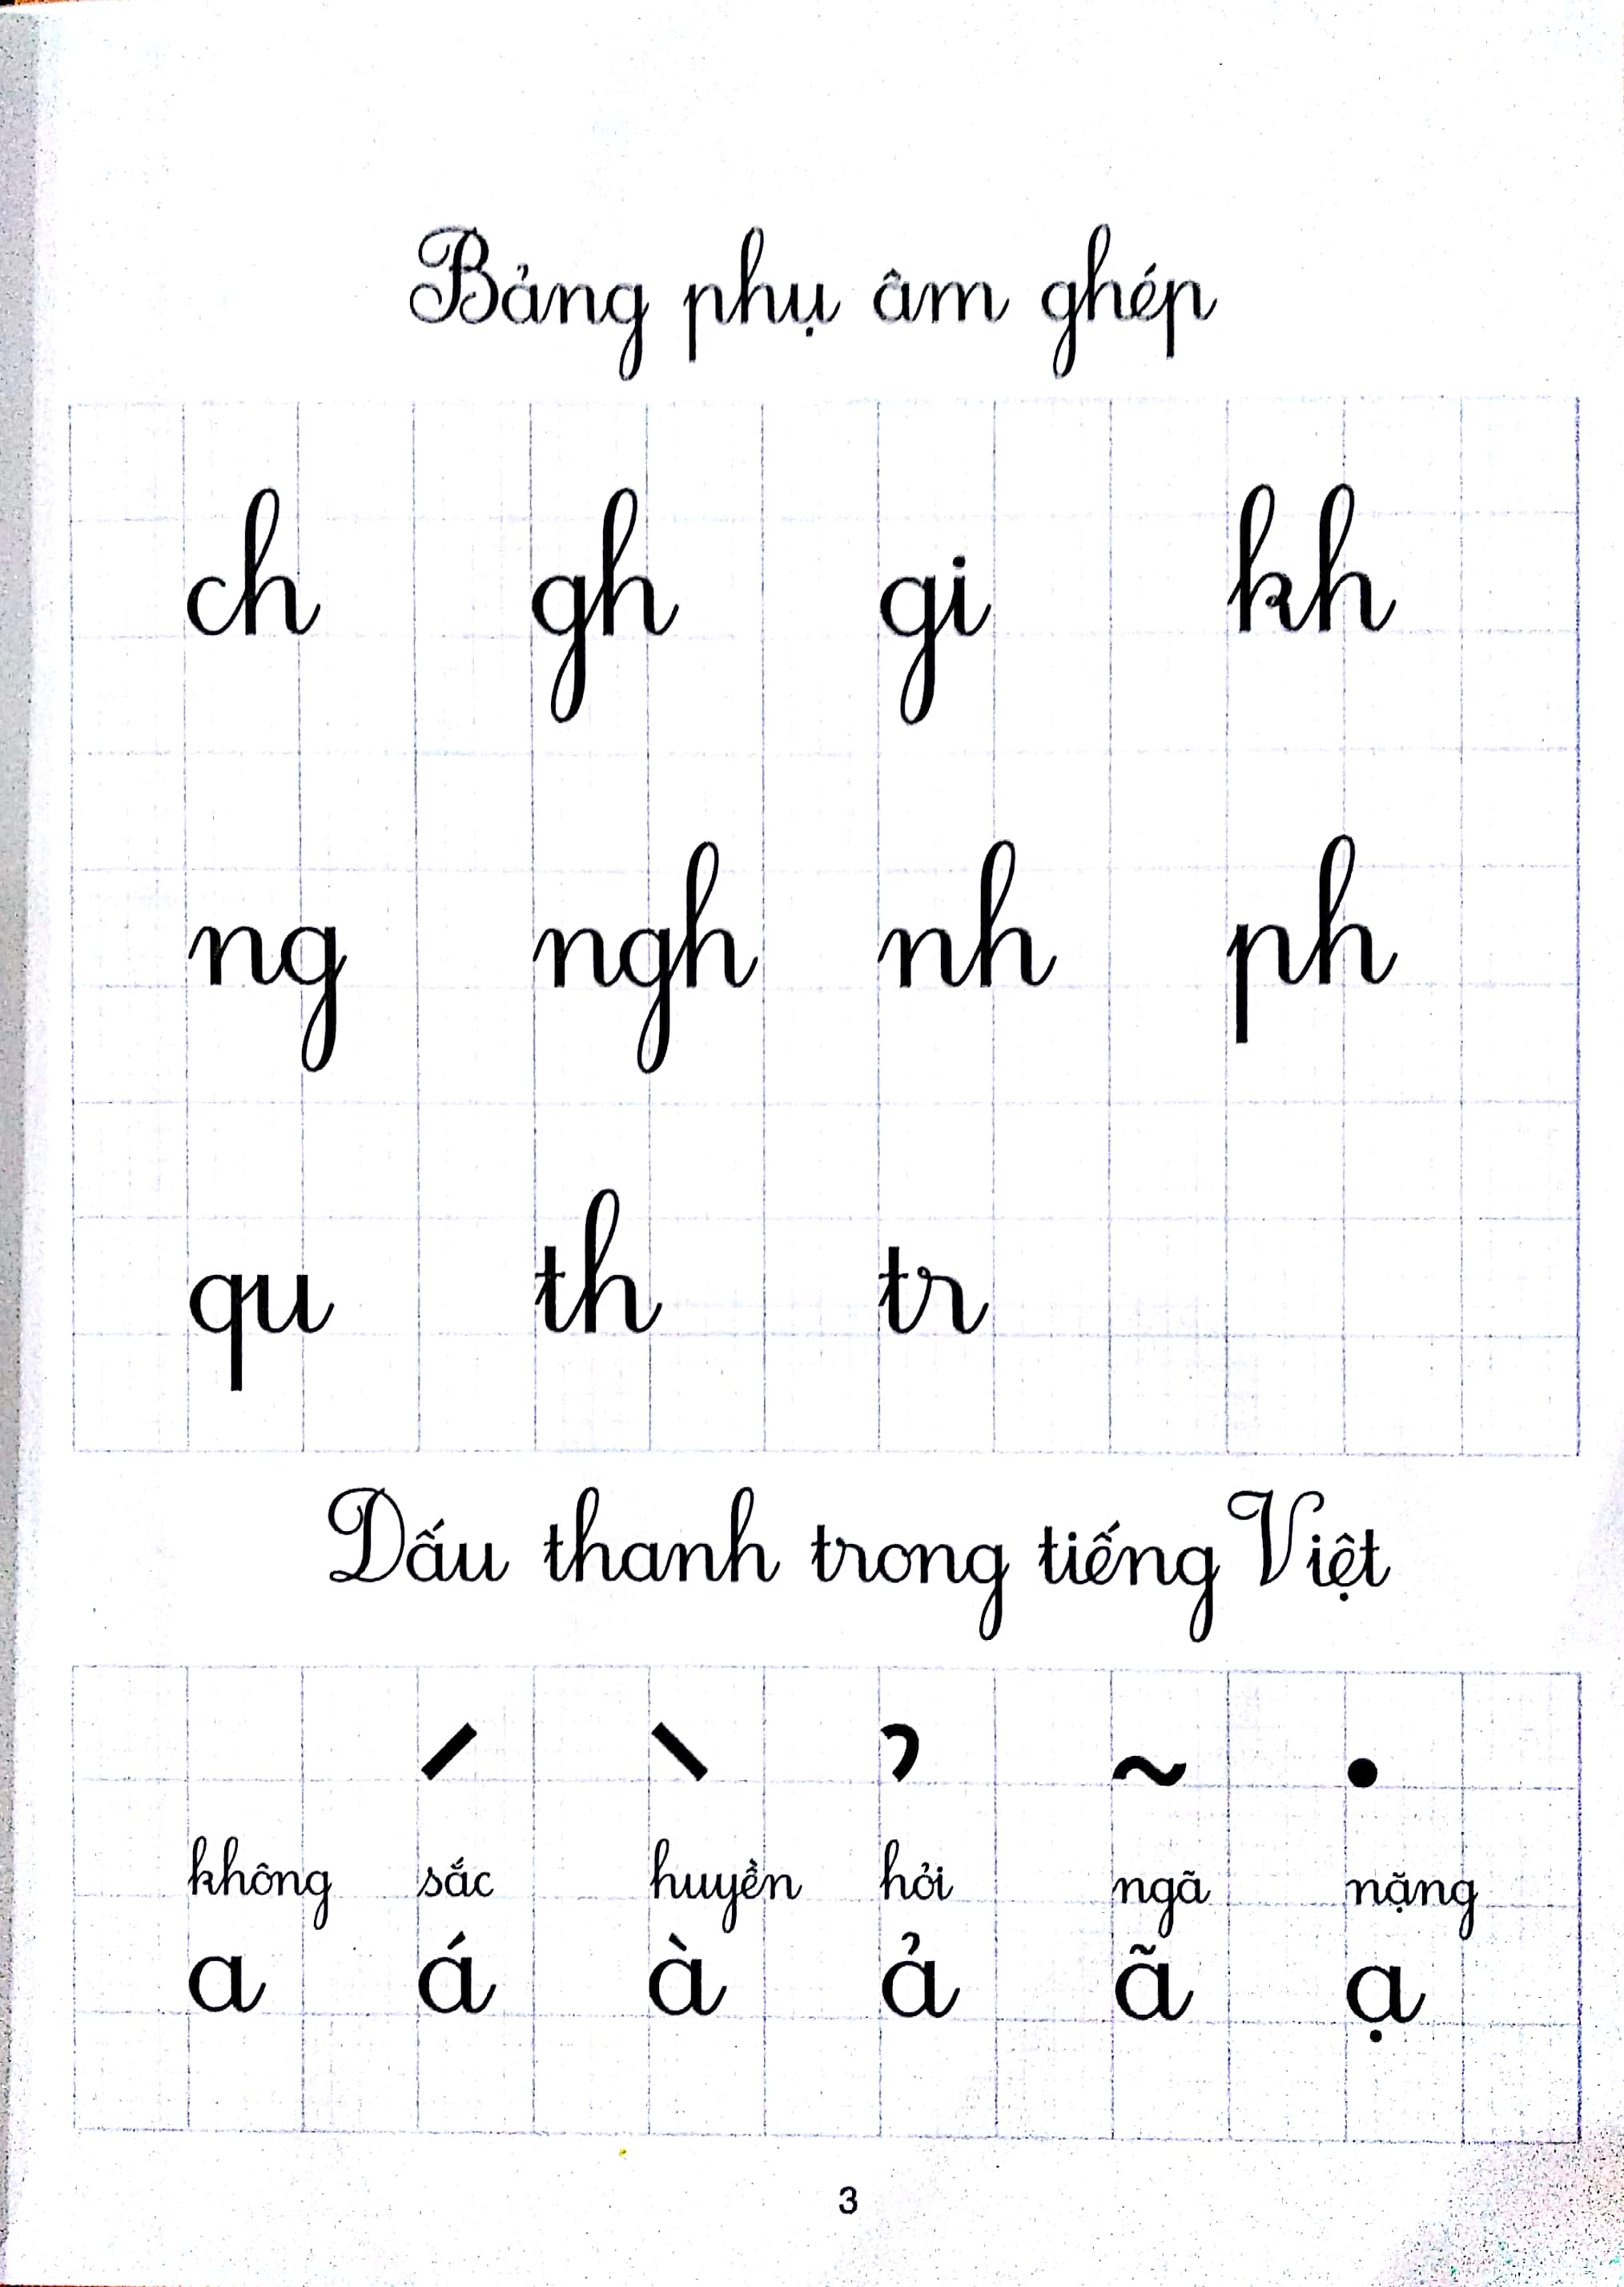 Bảng phụ âm ghép
ch gh gi kh
ng ngh nh ph
qu th tr
Dấu thanh trong tiếng Việt
́ ̀ ̉ ~ .
không sắc huyền hỏi ngã nặng
a á à ả ã ạ
3